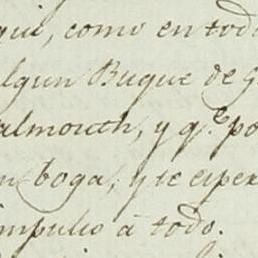 qui, como en todo
lgun Buque de G
almouth, y q.e po
n boga, y se esper
impulso a todo.